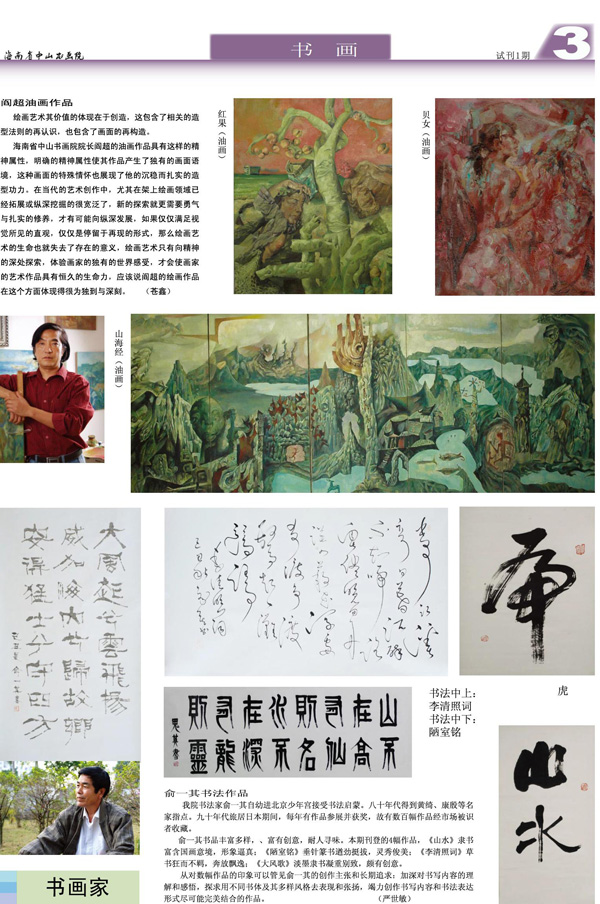 海南省中山书画院
书 画
试刊1期
3
阎超油画作品
绘画艺术其价值的体现在于创造，这包含了相关的造
型法则的再认识，也包含了画面的再构造。
海南省中山书画院院长阎超的油画作品具有这样的精
神属性，明确的精神属性使其作品产生了独有的画面语
境，这种画面的特殊情怀也展现了他的沉稳而扎实的造
型功力。在当代的艺术创作中，尤其在架上绘画领域已
经拓展或纵深挖掘的很宽泛了，新的探索就更需要勇气
与扎实的修养，才有可能向纵深发展，如果仅仅满足视
觉所见的直观，仅仅是停留于再现的形式，那么绘画艺
术的生命也就失去了存在的意义，绘画艺术只有向精神
的深处探索，体验画家的独有的世界感受，才会使画家
的艺术作品具有恒久的生命力，应该说阎超的绘画作品
在这个方面体现得很为独到与深刻。 （苍鑫）
红果（油画）
贝女（油画）
山海经（油画）
大风起兮云飞扬
威加海内兮归故乡
安得猛士兮守四方
虎
山不在高有仙则名水不
在深有龙则灵
书法中上：
李清照词
书法中下：
陋室铭
虎
山水
俞一其书法作品
我院书法家俞一其自幼进北京少年宫接受书法启蒙。八十年代得到黄绮、康殷等名
家指点。九十年代旅居日本期间，每年有作品参展并获奖，故有数百幅作品经市场被识
者收藏。
俞一其书品丰富多样，、富有创意，耐人寻味。本期刊登的4幅作品，《山水》隶书
富含国画意境，形象逼真；《陋室铭》垂针篆书遒劲挺拔，灵秀俊美；《李清照词》草
书狂而不羁，奔放飘逸；《大风歌》淡墨隶书凝重别致，颇有创意。
从对数幅作品的印象可以管见俞一其的创作主张和长期追求：加深对书写内容的理
解和感悟，探求用不同书体及其多样风格去表现和张扬，竭力创作书写内容和书法表达
形式尽可能完美结合的作品。 （严世敏）
书画家